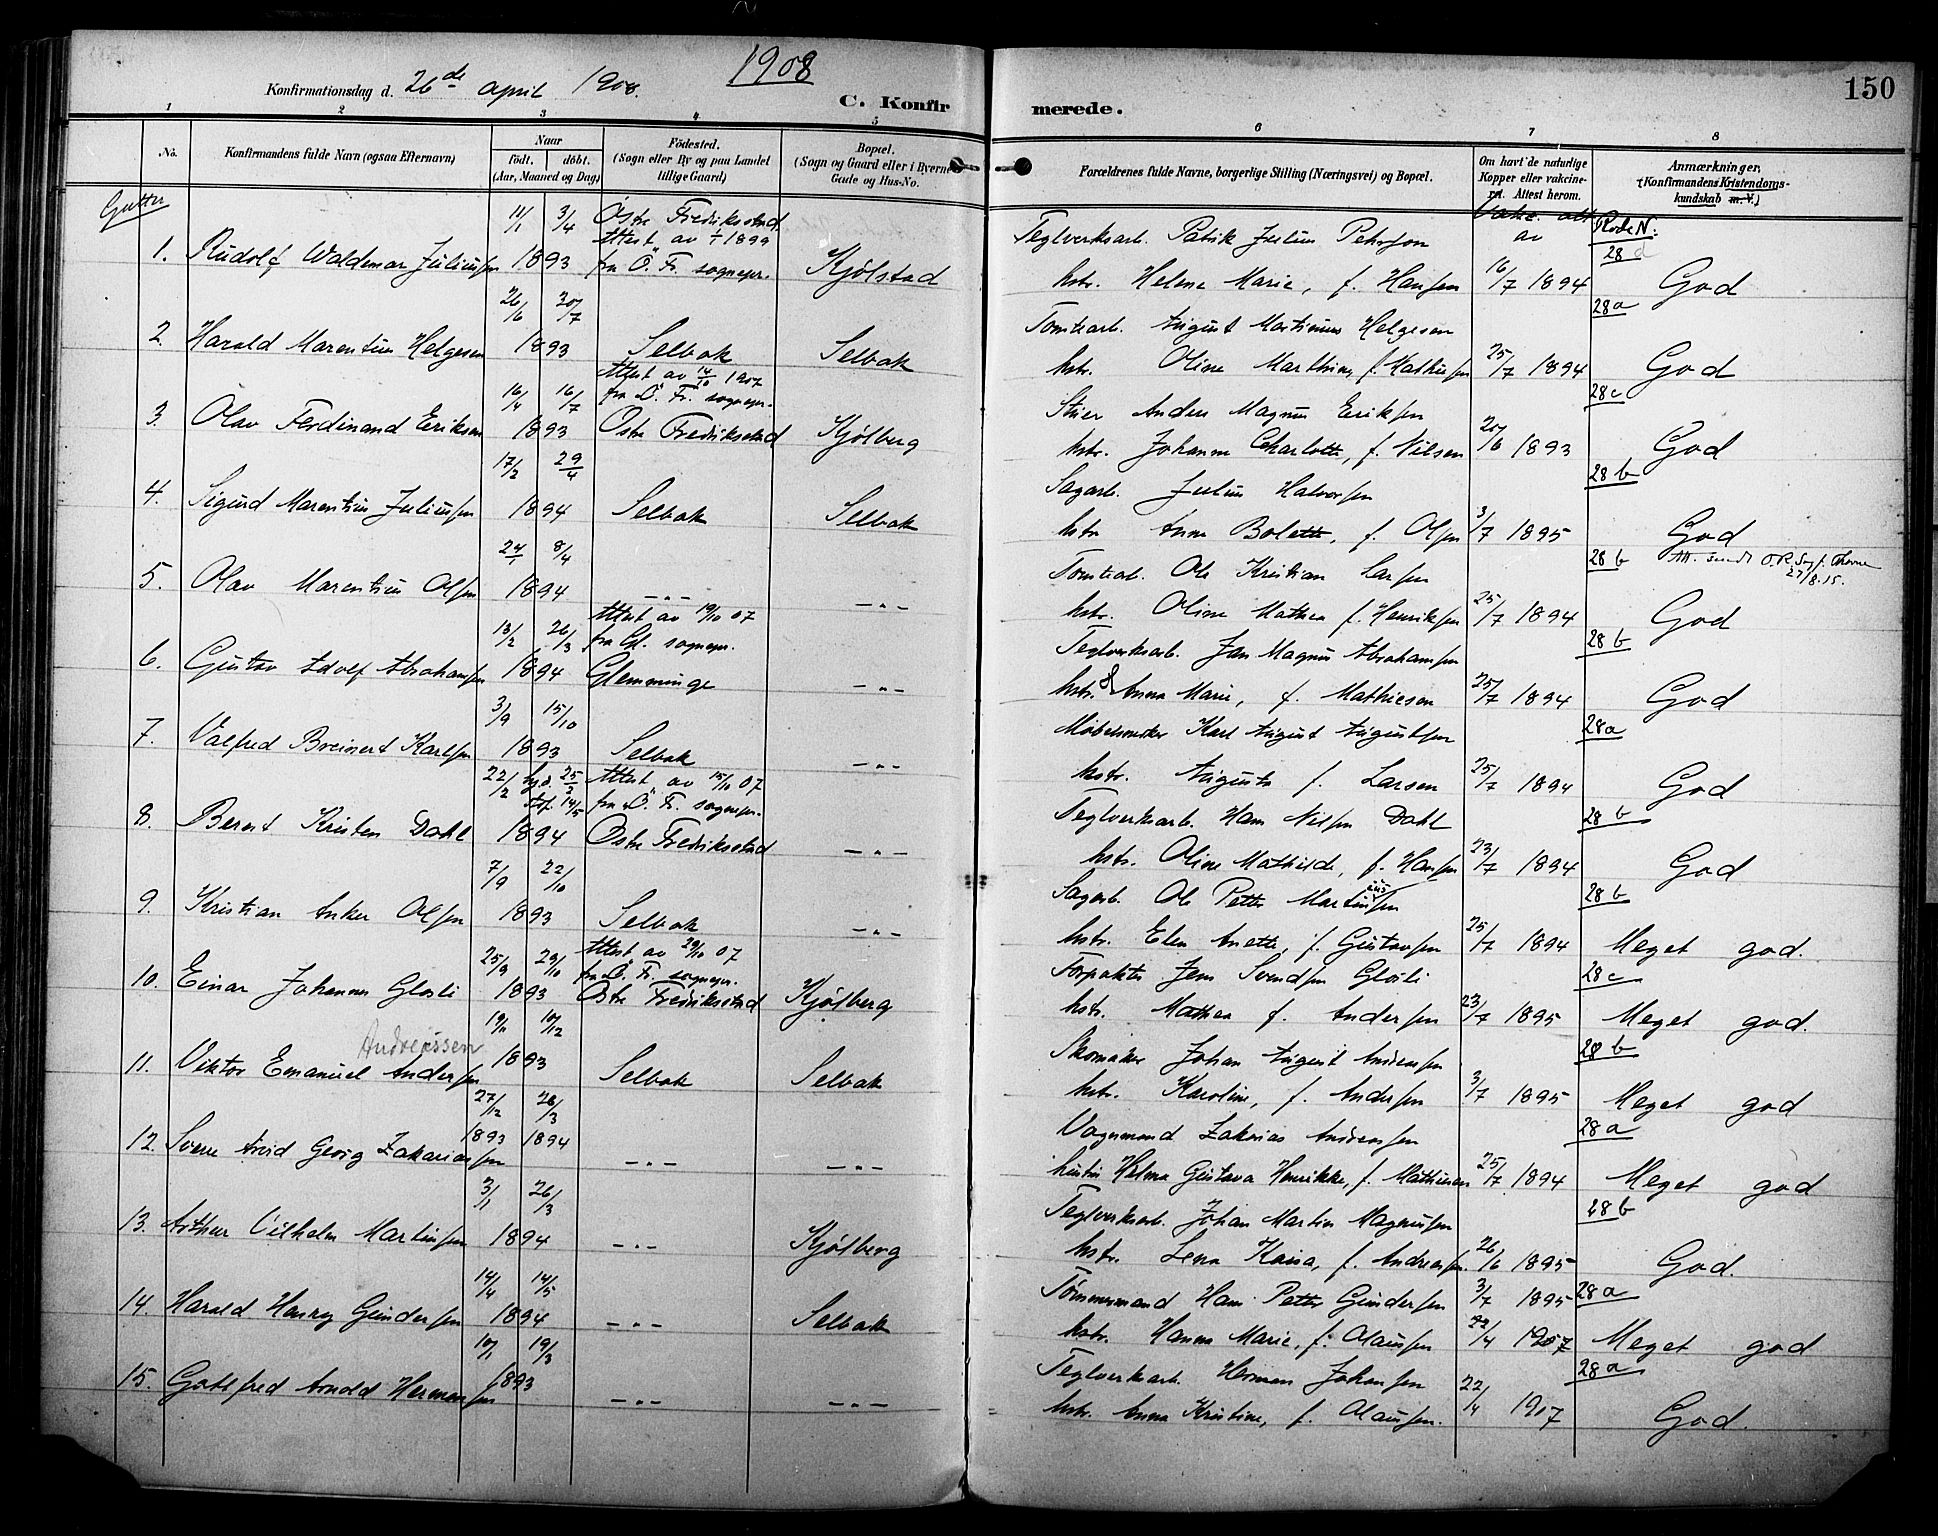 1908
150
Konfirmationsdag d. 26de april 1908.
C. Konfirmerede.
1 2 3 4 5 6 7 8
No.
Konfirmandens fulde Navn (ogsaa Efternavn)
Naar
födt. döbt.
(Aar, Maaned og Dag)
Födested.
(Sogn eller By og paa Landet
tillige Gaard)
Bopæl.
(Sogn og Gaard eller i Byerne
Gade og Hus-No.
Forældrenes fulde Navne, borgerlige Stilling (Næringsvei) og Bopæl.
Om havt de naturlige
Kopper eller vakcine-
ret. Attest herom.
Anmærkninger,
(Konfirmandens Kristendoms-
kundskab m. V.)
Gutter
Vakc. att. av
Rode N:
11/1 3/4 Östre Fredriksstad
Attest av 1/1 1899
1. Rudolf Waldemar Juliussen 1893 fra Ö. Fr. sognepr. Kjölstad
Teglverksarb. Patrik Julius Pehrson 28 d
hstr. Helene Marie, f. Hansen 16/7 1894 God
26/6 30/7
2. Harald Marentius Helgesen 1893 Selbak Selbak
Tomtearb. August Martinius Helgesen 28a
hstr. Oline Marthine f. Mathisen 25/7 1894 God
16/4 16/7 Attest av 14/10 1907
fra Ö. Fr. sognepr.
3. Olav Ferdinand Eriksen 1893 Östre Fredriksstad Kjölberg
Stuer Anders Magnus Eriksen 28c
hstr. Johanne Charlotte, f. Nilsen 20/6 1893 God
17/2 29/4
4. Sigurd Marentius Juliussen 1894 Selbak Selbak
Sagarb. Julius Halvorsen 28 b
hstr Anne Bolette, f. Olsen 3/7 1895 God
24/1 8/4
5. Olav Marentius Olsen 1894 -"- -"-
Tomtearb. Ole Kristian Larsen 28 b
27/8.15.
hstr. Oline Mathea f. Henriksen 25/7 1894 God
13/2 26/3 Attest av 19/10 07
fra Gl. sognepr.
6. Gustav Adolf Abrahamsen 1894 Glemminge -"-
Teglverksarb. Jan Magnus Abrahamsen 28 b
hstr. Anna Marie, f. Mathiesen 25/7 1894 God
3/9 15/10
7. Valfred Breinert Karlsen 1893 Selbak -"-
Möbelsnedker Karl August Augustsen 28a
hstr. Augusta f. Larsen 25/7 1894 God
22/2 hjd. 25/2 Attest av 15/10 07
stf. 14/5 fra Ö. Fr. sognepr.
8. Bernt Kristen Dahl 1894 Östre Fredriksstad -"-
Teglverksarb. Hans Nilsen Dahl 28 b
hstr. Oline Mathilde, f. Hansen 23/7 1894 God
7/9 22/10
9. Kristian Anker Olsen 1893 Selbak -"-
Sagarb. Ole Petter Martiniussen 28 b
hstr. Elen Anette, f. Gustavsen 25/7 1894 Meget god.
25/9 29/10 Attest av 29/10 07
fra Ö. Fr. sognepr.
10. Einar Johannes Glosli 1893 Östre Fredriksstad Kjölberg
Forpakter Jens Svendsen Glosli 28c
hstr. Mathea f. Andersen 23/7 1895 Meget god.
19/11 10/12
Andreassen
11. Viktor Emanuel Andersen 1893 Selbak Selbak
Skomaker Johan August Andersen 28 b
hstr. Karoline, f. Andersen 3/7 1895 Meget god
27/12 26/3
12. Sverre Arvid Georg Zakariassen 1893 1894 -"- -"-
Vognmand Zakarias Andreassen 28a
hustru Helma Gustava Henrikke, f. Mathiesen 25/7 1894 Meget god
3/1 26/3
13. Arthur Vilhelm Martinsen 1894 -"- Kjölberg
Teglverksarb. Johan Martin Magnussen 28 b
hstr. Lena Kaisa, f. Andreassen. 26/6 1895 God.
14/4 14/5
14. Harald Henry Gundersen 1894 -"- Selbak
Tömmermand Hans Petter Gundersen 3/7 1895 28a
hstr. Hanna Marie, f. Olaussen 22/4 1907 Meget god
10/1 19/3
15. Gottfred Arnold Hermansen 1893 -"- -"-
Teglverksarb. Herman Johansen 28a
hstr. Anna Kristine, f. Olaussen. 22/4 1907 God.